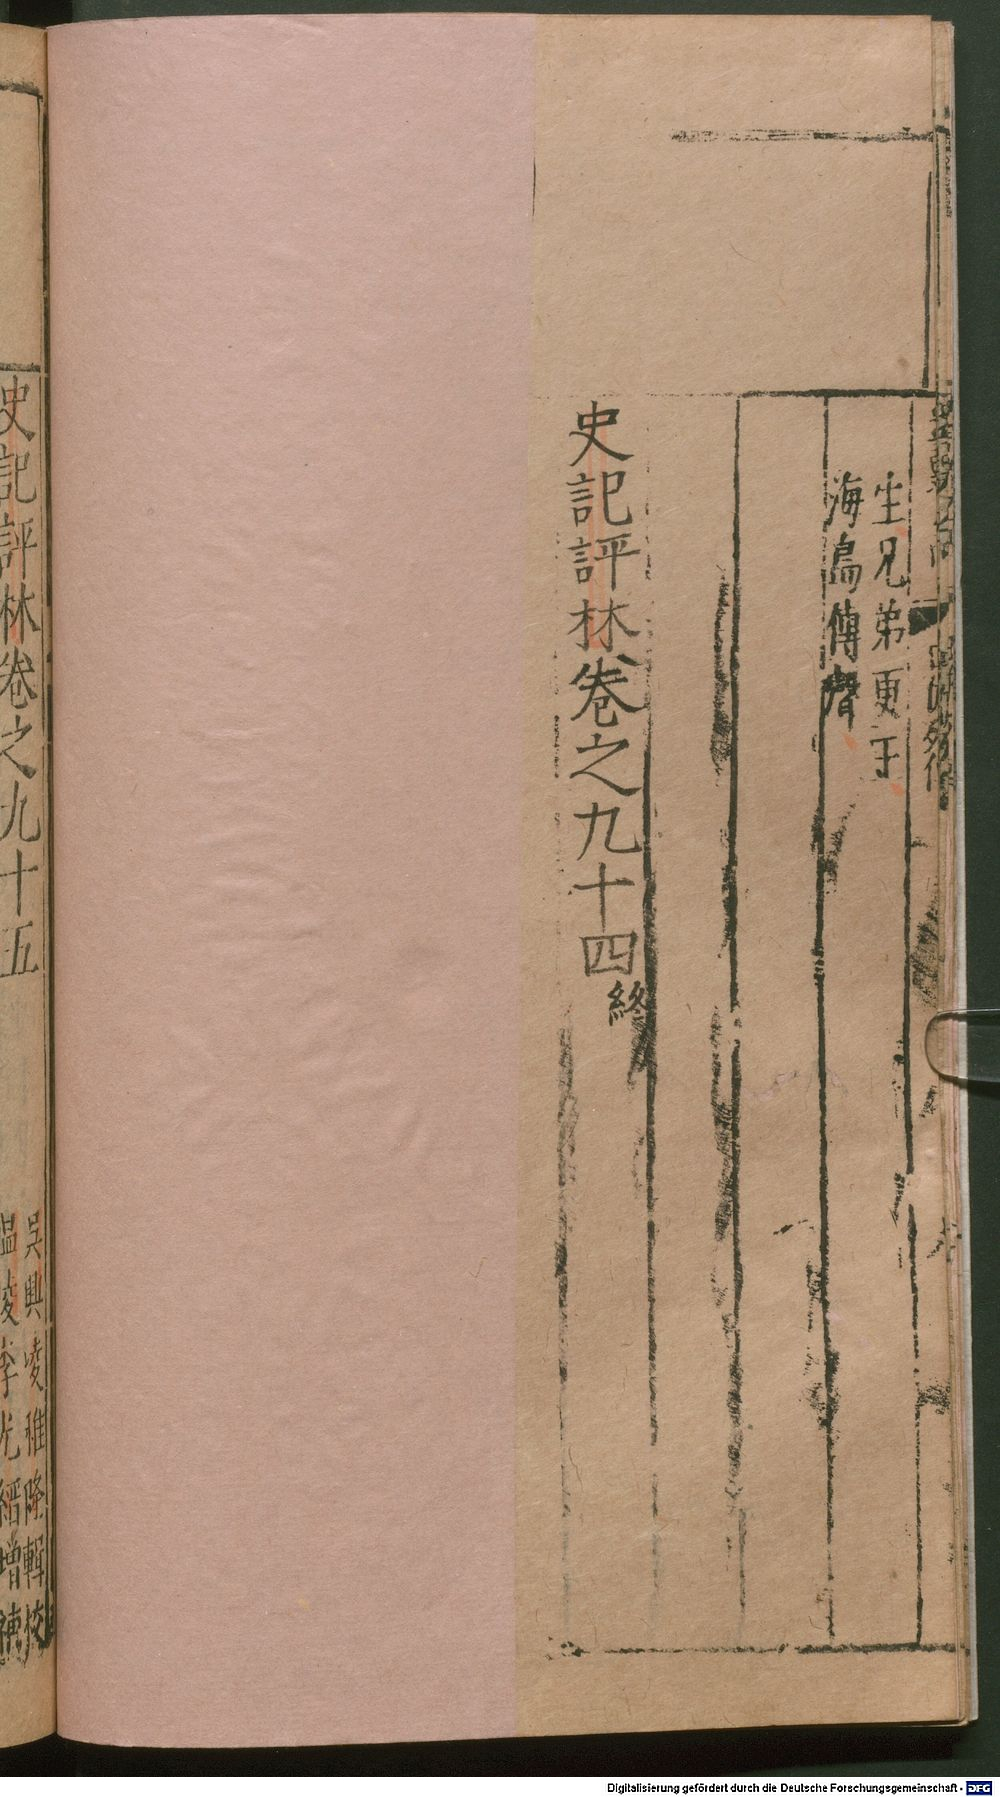 生兄弟更王
海島傳聲
史記評林卷之九十四終
史記評林卷之九十五
吳興凌稚隆輯校
溫陵李光縉增補
Digitalisierung gefördert durch die Deutsche Forschungsgemeinschaft - DFG